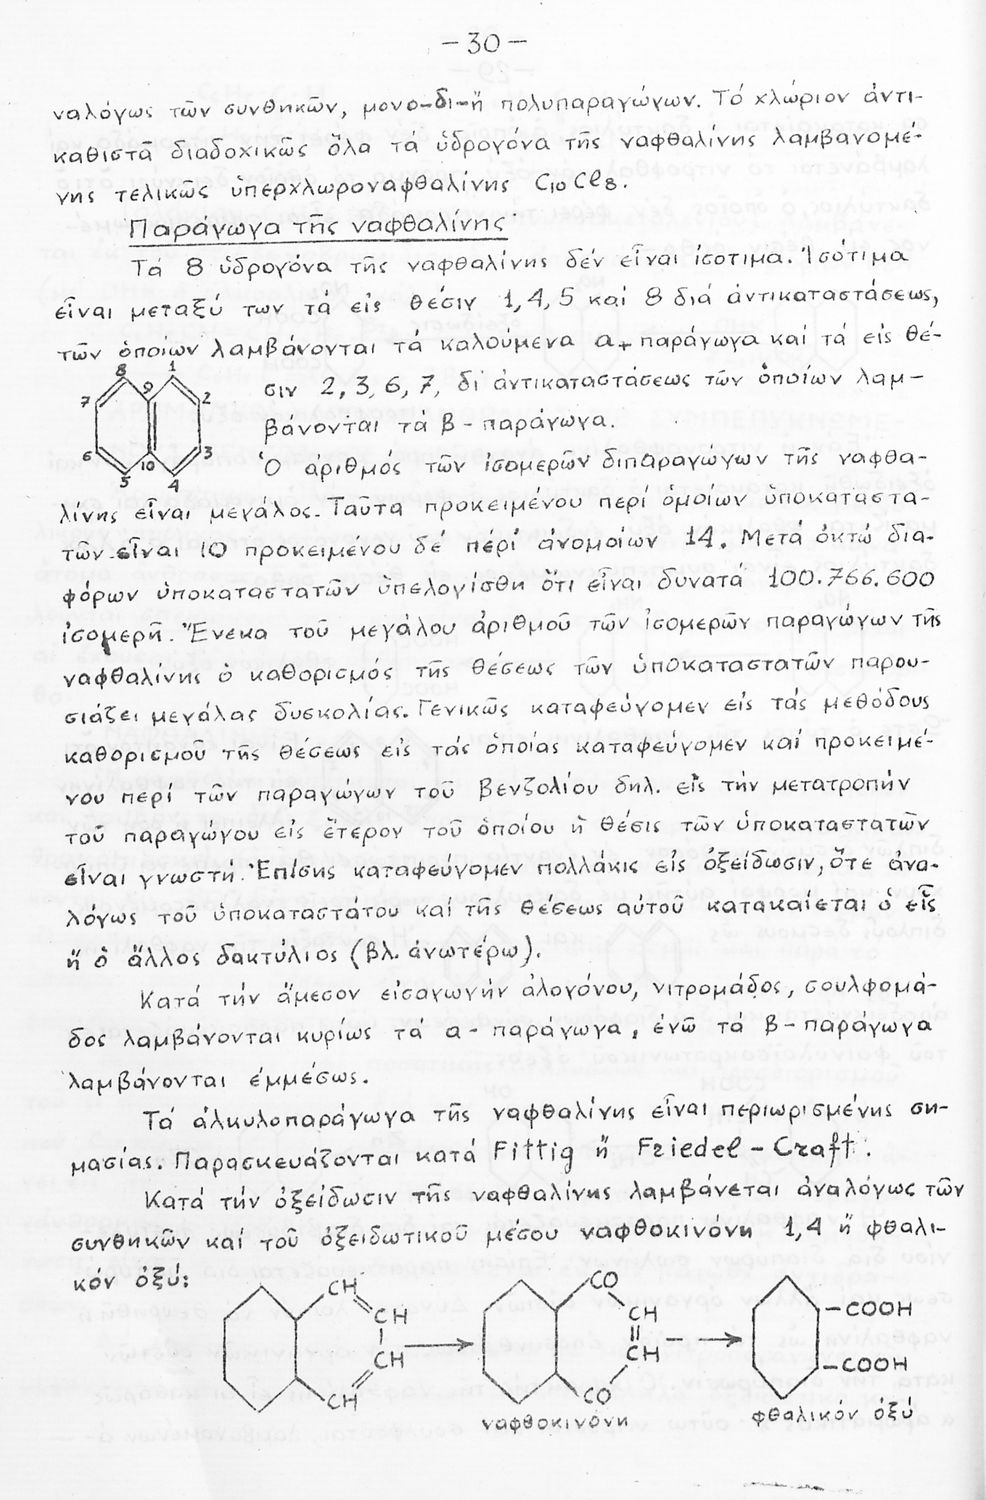 -30-
ναλόγως τῶν συνθηκῶν, μονο-δι-ἤ πολυπαραγώγων. Τό χλώριον ἀντι-
καθιστᾶ διαδοχικῶς ὅλα τά ὑδρογόνα τῆς ναφθαλίνης λαμβανομέ-
νης τελικῶς ὑπερχλωροναφθαλίνης C10Cl8.
Παράγωγα τῆς ναφθαλίνης
Τά 8 ὑδρογόνα τῆς ναφθαλίνης δέν εἶναι ἰσότιμα. Ἰσότιμα
εἶναι μεταξύ των τά εἰς θέσιν 1,4,5 καί 8 διά ἀντικαταστάσεως,
τῶν ὁποίων λαμβάνονται τά καλούμενα α+ παράγωγα καί τά εἰς θέ-
σιν 2,3,6,7, δι' ἀντικαταστάσεως τῶν ὁποίων λαμ-
βάνονται τά β - παράγωγα.
8 1
7 9 2
6 10 3
5 4
Ὁ ἀριθμός τῶν ἰσομερῶν διπαραγώγων τῆς ναφθα-
λίνης εἶναι μεγάλος. Ταῦτα προκειμένου περί ὁμοίων ὑποκαταστα-
τῶν εἶναι 10 προκειμένου δέ περί ἀνομοίων 14. Μετά ὀκτώ δια-
φόρων ὑποκαταστατῶν ὑπελογίσθη ὅτι εἶναι δυνατά 100.766.600
ἰσομερῆ. Ἕνεκα τοῦ μεγάλου ἀριθμοῦ τῶν ἰσομερῶν παραγώγων τῆς
ναφθαλίνης ὁ καθορισμός τῆς θέσεως τῶν ὑποκαταστατῶν παρου-
σιάζει μεγάλας δυσκολίας. Γενικῶς καταφεύγομεν εἰς τάς μεθόδους
καθορισμοῦ τῆς θέσεως εἰς τάς ὁποίας καταφεύγομεν καί προκειμέ-
νου περί τῶν παραγώγων τοῦ βενζολίου δηλ. εἰς τήν μετατροπήν
τοῦ παραγώγου εἰς ἕτερον τοῦ ὁποίου ἡ θέσις τῶν ὑποκαταστατῶν
εἶναι γνωστή. Ἐπίσης καταφεύγομεν πολλάκις εἰς ὀξείδωσιν, ὅτε ἀνα-
λόγως τοῦ ὑποκαταστάτου καί τῆς θέσεως αὐτοῦ κατακαίεται ὁ εἷς
ἤ ὁ ἄλλος δακτύλιος (βλ. ἀνωτέρω).
Κατά τήν ἄμεσον εἰσαγωγήν ἁλογόνου, νιτρομάδος, σουλφομά-
δος λαμβάνονται κυρίως τά α - παράγωγα, ἐνῶ τά β - παράγωγα
λαμβάνονται ἐμμέσως.
Τά ἀλκυλοπαράγωγα τῆς ναφθαλίνης εἶναι περιωρισμένης ση-
μασίας. Παρασκευάζονται κατά Fittig ἤ Friedel - Craft.
Κατά τήν ὀξείδωσιν τῆς ναφθαλίνης λαμβάνεται ἀναλόγως τῶν
συνθηκῶν καί τοῦ ὀξειδωτικοῦ μέσου ναφθοκινόνη 1,4 ἤ φθαλι-
κόν ὀξύ:
CH CO
CH CH -COOH
CH CH -COOH
CH CO
ναφθοκινόνη φθαλικόν ὀξύ